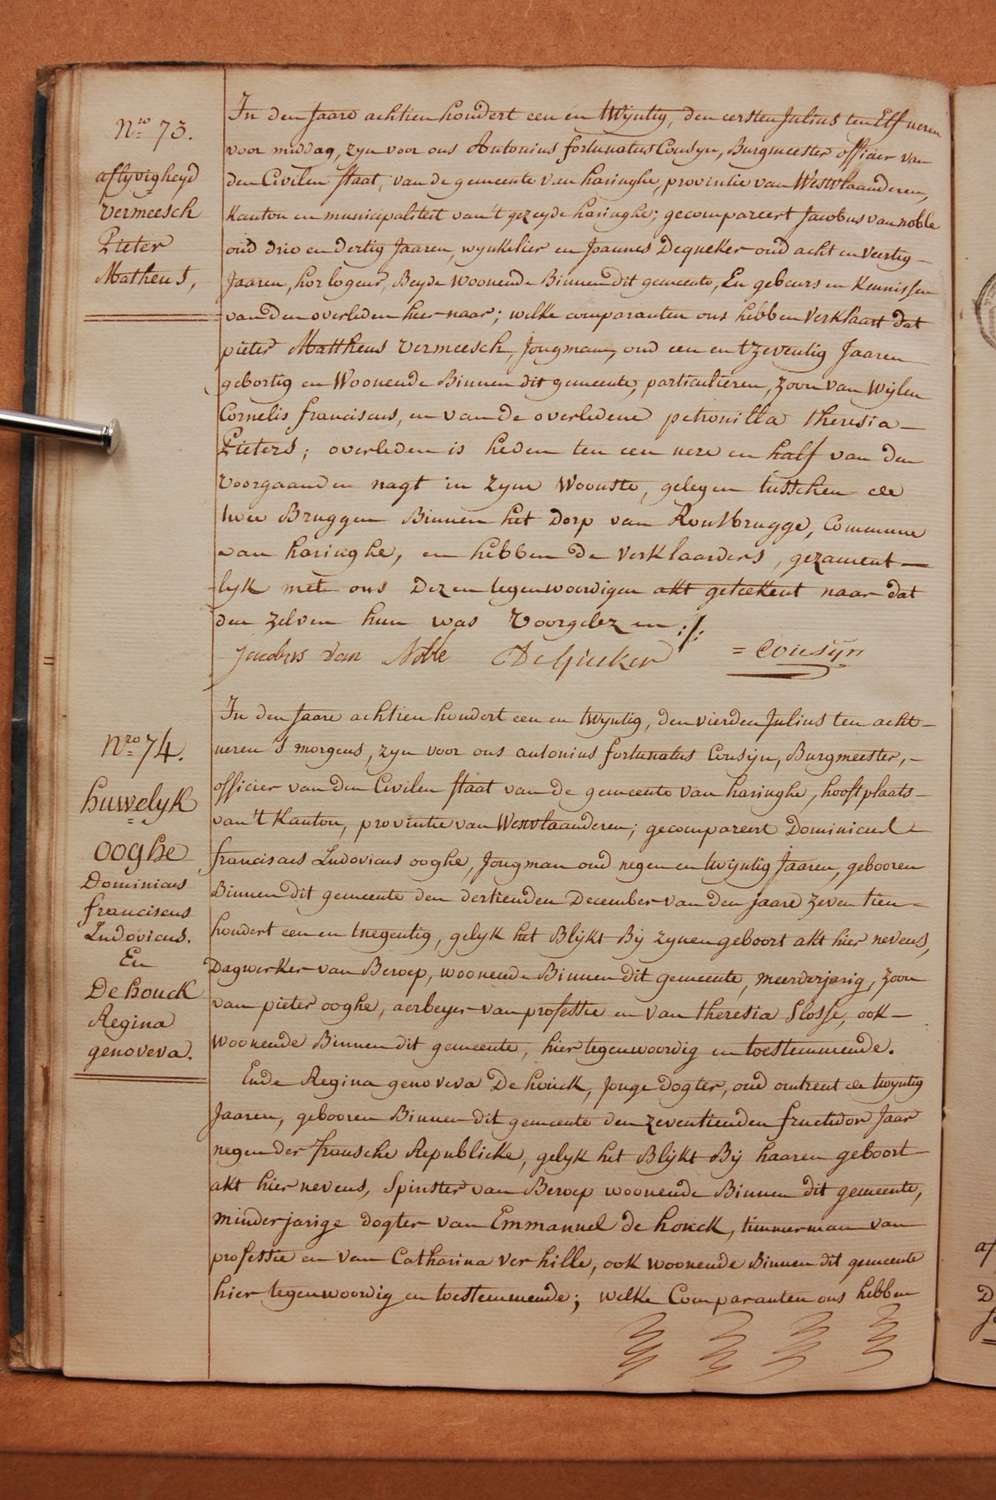 Nro 73.
aflyvigheyd
Vermeesch
Pieter
Matheus,
In den Jaare achtien hondert een en twyntig, den eersten Julius ten Elf ueren
voor middag, zyn voor ons Antonius fortunatus Cousyn, Burgmeester officier van
den Civilen staat, van de gemeente van haringhe, provintie van Westvlaanderen,
Kanton en municipaliteit van 't gezeyde haringhe; gecompareert Jacobus van noble
oud drie en dertig Jaaren, wynkelier en Joannes Dequeker oud acht en veertig
Jaaren, horlogeur, Beyde Woonende Binnen dit gemeente, En gebeurs en Kennissen
van den overleden hier naar; welke comparanten ons hebben Verklaart dat
pieter Mattheus Vermeesch, Jongman, oud een en tzeventig Jaaren
gebortig en Woonende Binnen dit gemeente, particulieren, zoon van Wylen
Cornelis franciscus, en van de overledene petronilla theresia
Pieters; overleden is heden ten een uere en half van den
voorgaanden nagt in zyne Woonste, gelegen tusschen de
twee Bruggen Binnen het Dorp van Rousbrugge, Commune
van haringhe, en hebben de verklaarders, gezament-
lyk met ons Dezen tegenwoordigen akt geteekent naar dat
den zelven hun was Voorgelezen :/:
Jacobus van Noble DeQueker = Cousyn
Nro 74.
huwelyk
ooghe
Dominicus
franciscus
Ludovicus.
En
De houck
Regina
genoveva.
In den Jaare achtien hondert een en twyntig, den vierden Julius ten acht
ueren s morgens, zyn voor ons antonius fortunatus Cousyn, Burgmeester,
officier van den Civilen staat van de gemeente van haringhe, hooftplaats
van 't Kanton, provintie van Westvlaanderen; gecompareert Dominicus
franciscus Ludovicus ooghe, Jongman oud negen en twyntig Jaaren, gebooren
Binnen dit gemeente den dertienden December van den jaare zeven tien
hondert een en tnegentig, gelyk het Blykt By zynen geboort akt hier nevens,
Dagwerker van Beroep, woonende Binnen dit gemeente, meerderjarig, zoon
van pieter ooghe, aerbeyer van professie en van theresia Slosse, ook
woonende Binnen dit gemeente, hier tegenwoordig en toestemmende.
Ende Regina genoveva De houck, Jonge dogter, oud omtrent de twyntig
Jaaren, gebooren Binnen dit gemeente den zeventienden fructidor Jaar
negen der fransche Republicke, gelyk het Blykt By haaren geboort
akt hier nevens, Spinster van Beroep woonende Binnen dit gemeente,
minderjarige dogter van Emmanuel de houck, timmerman van
professie en van Catharina Verhille, ook woonende Binnen dit gemeente
hier tegenwoordig en toestemmende; welke Comparanten ons hebben
af
D